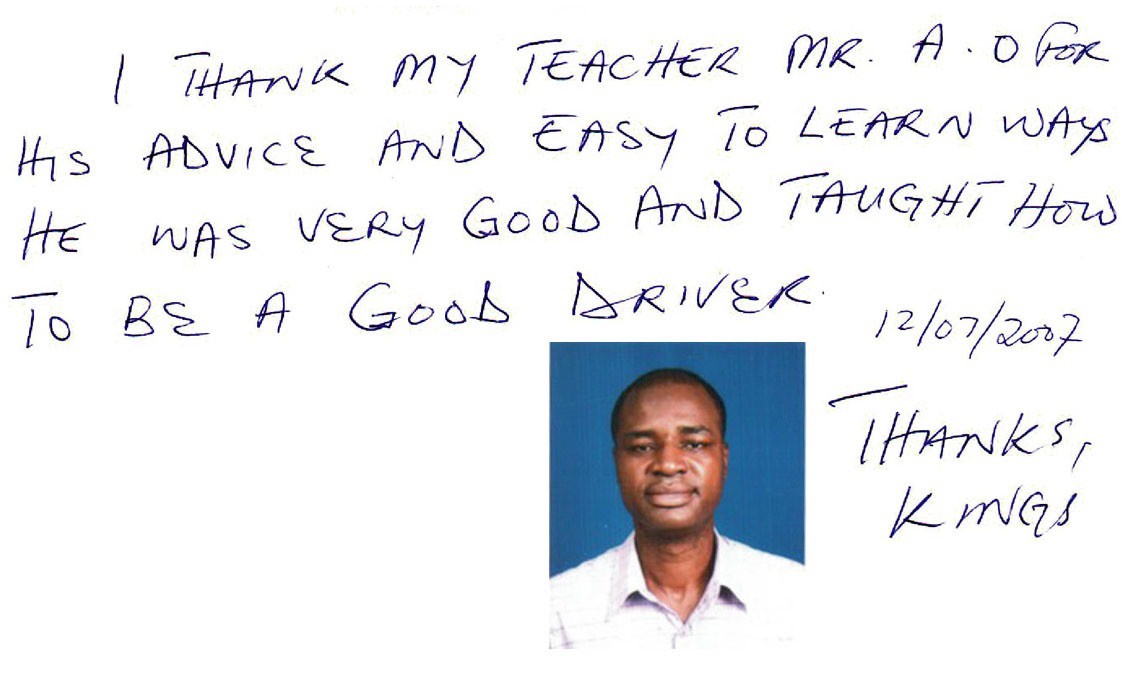 I THANK MY TEACHER MR. A. O FOR
HIS ADVICE AND EASY TO LEARN WAYS
HE WAS VERY GOOD AND TAUGHT HOW
TO BE A GOOD DRIVER.
12/07/2007
THANKS,
KINGS